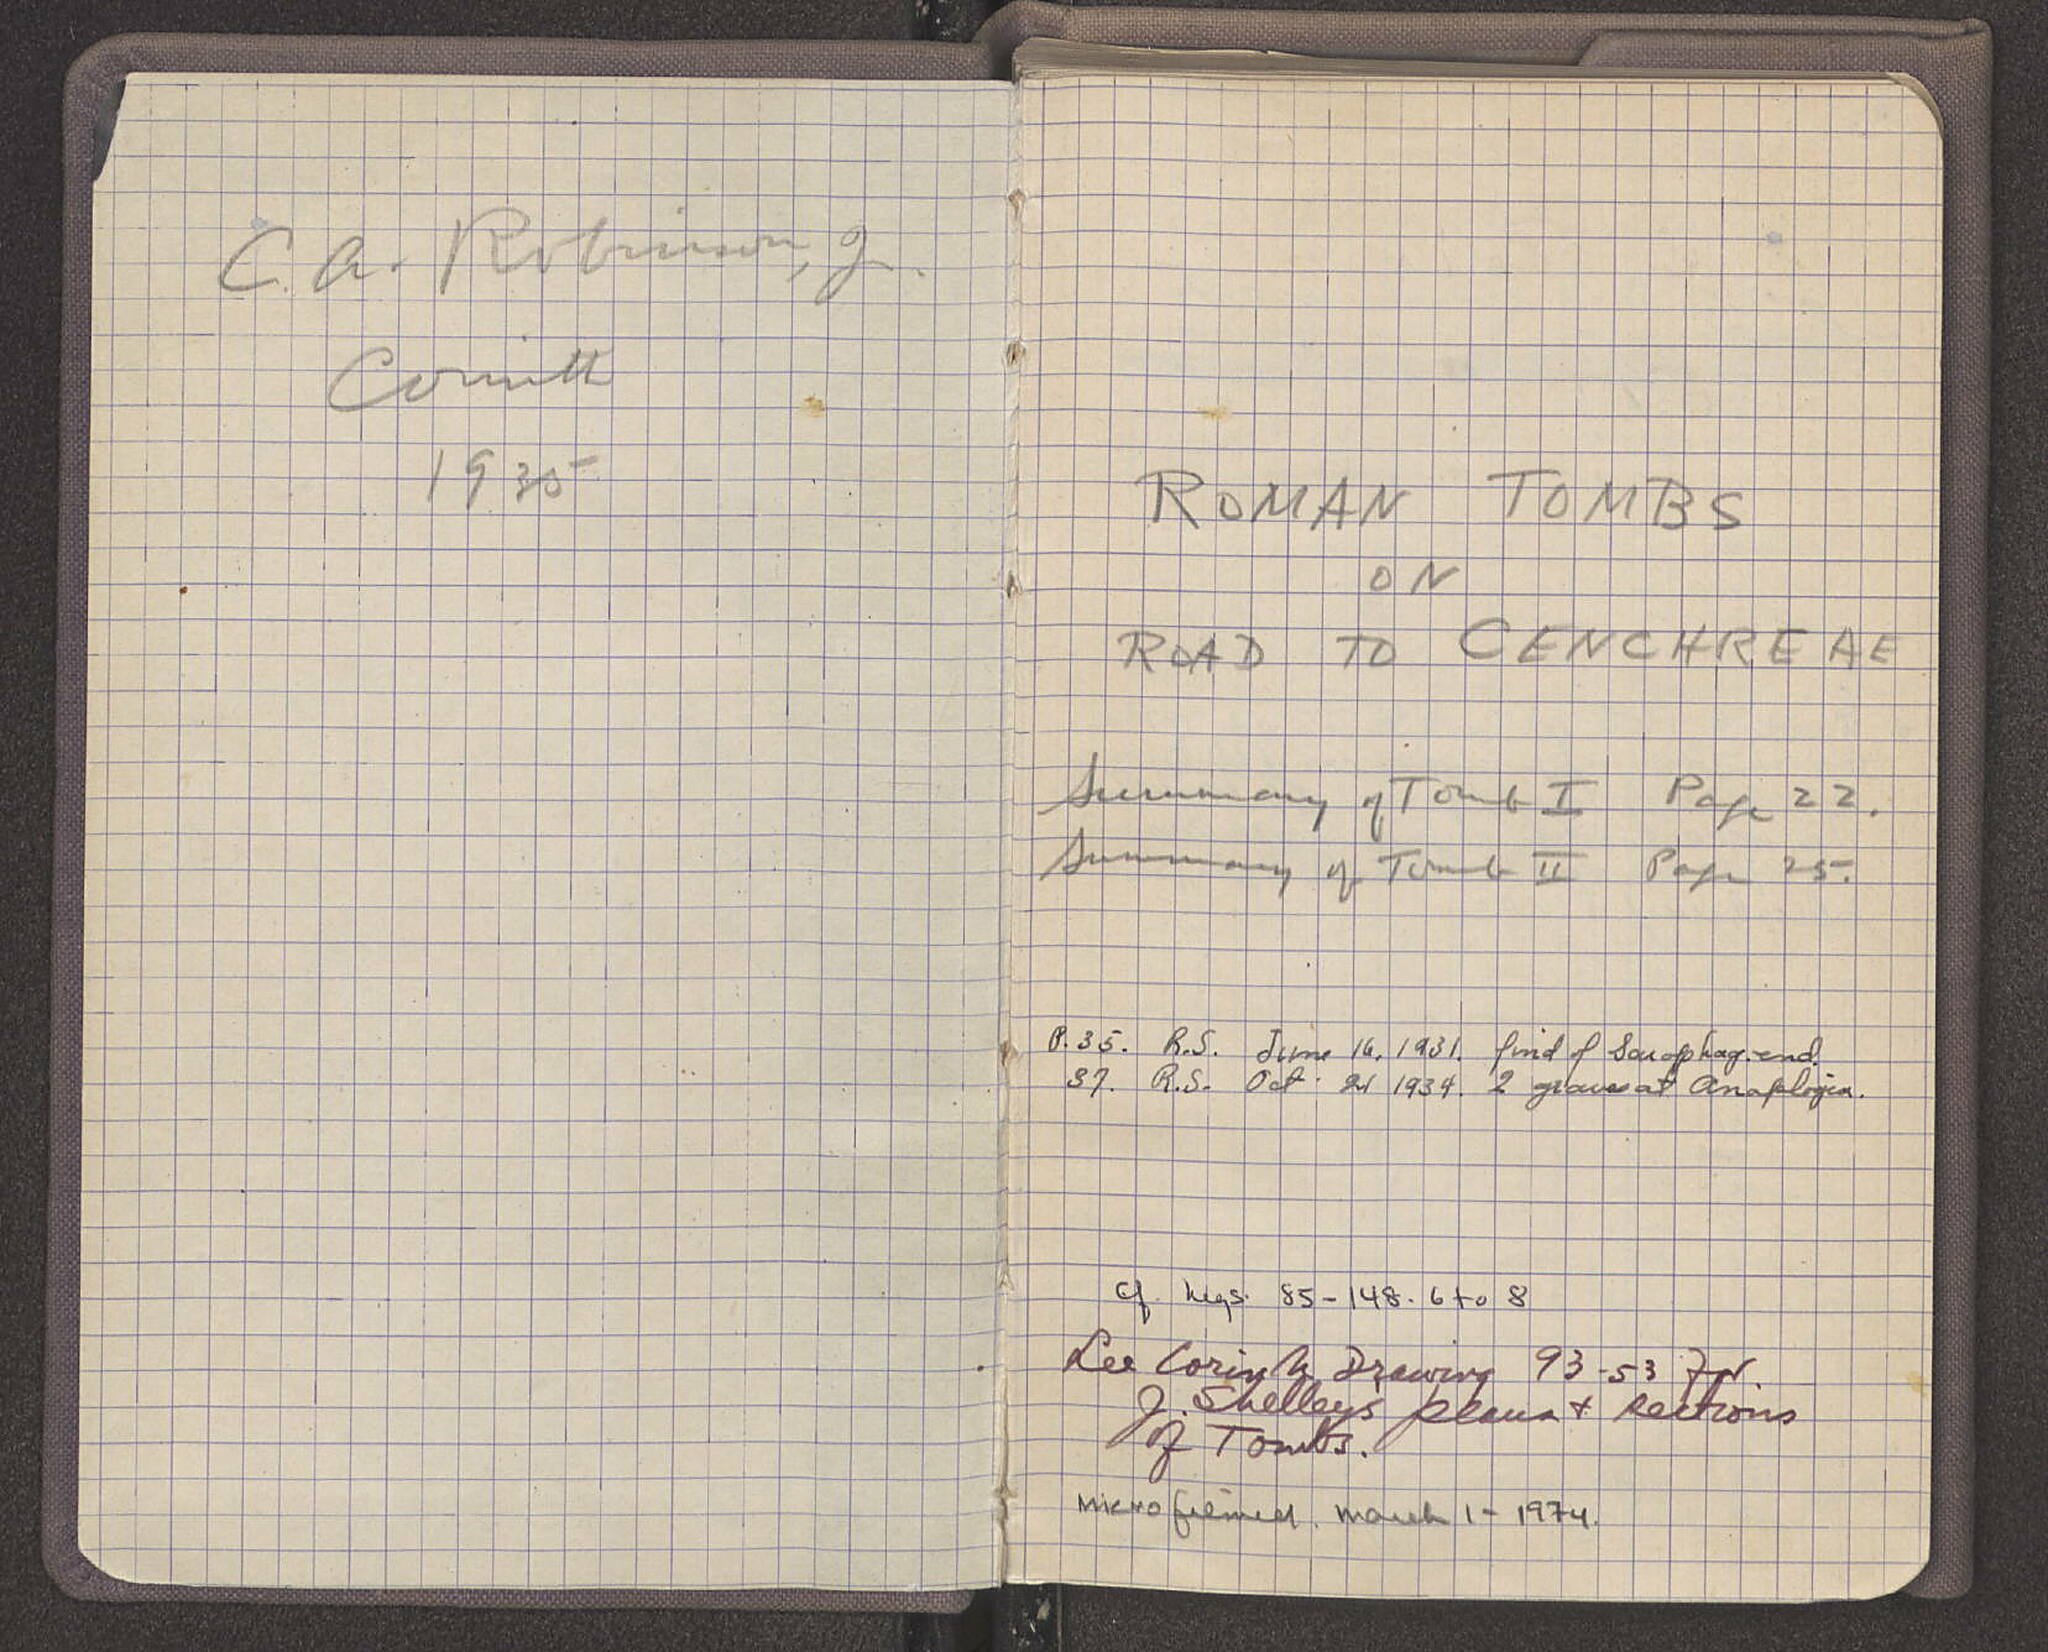 C. A. Robinson, Jr.
Corinth
1935
ROMAN TOMBS
ON
ROAD TO CENCHREAE
Summary of Tomb I Page 22.
Summary of Tomb II Page 25.
P. 35. R.S. June 16, 1931. find of Sarcophag. end.
37. R.S. Oct. 1934. 2 graves at Anaploga.
cf. negs. 85-148. 6 to 8
See Corinth Drawing 93-53 for
J. Shelleys plans + sections
of Tombs.
Microfilmed. March 1 - 1974.